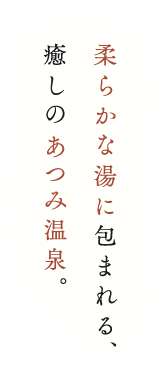 柔らかな湯に包まれる、
癒しのあつみ温泉。